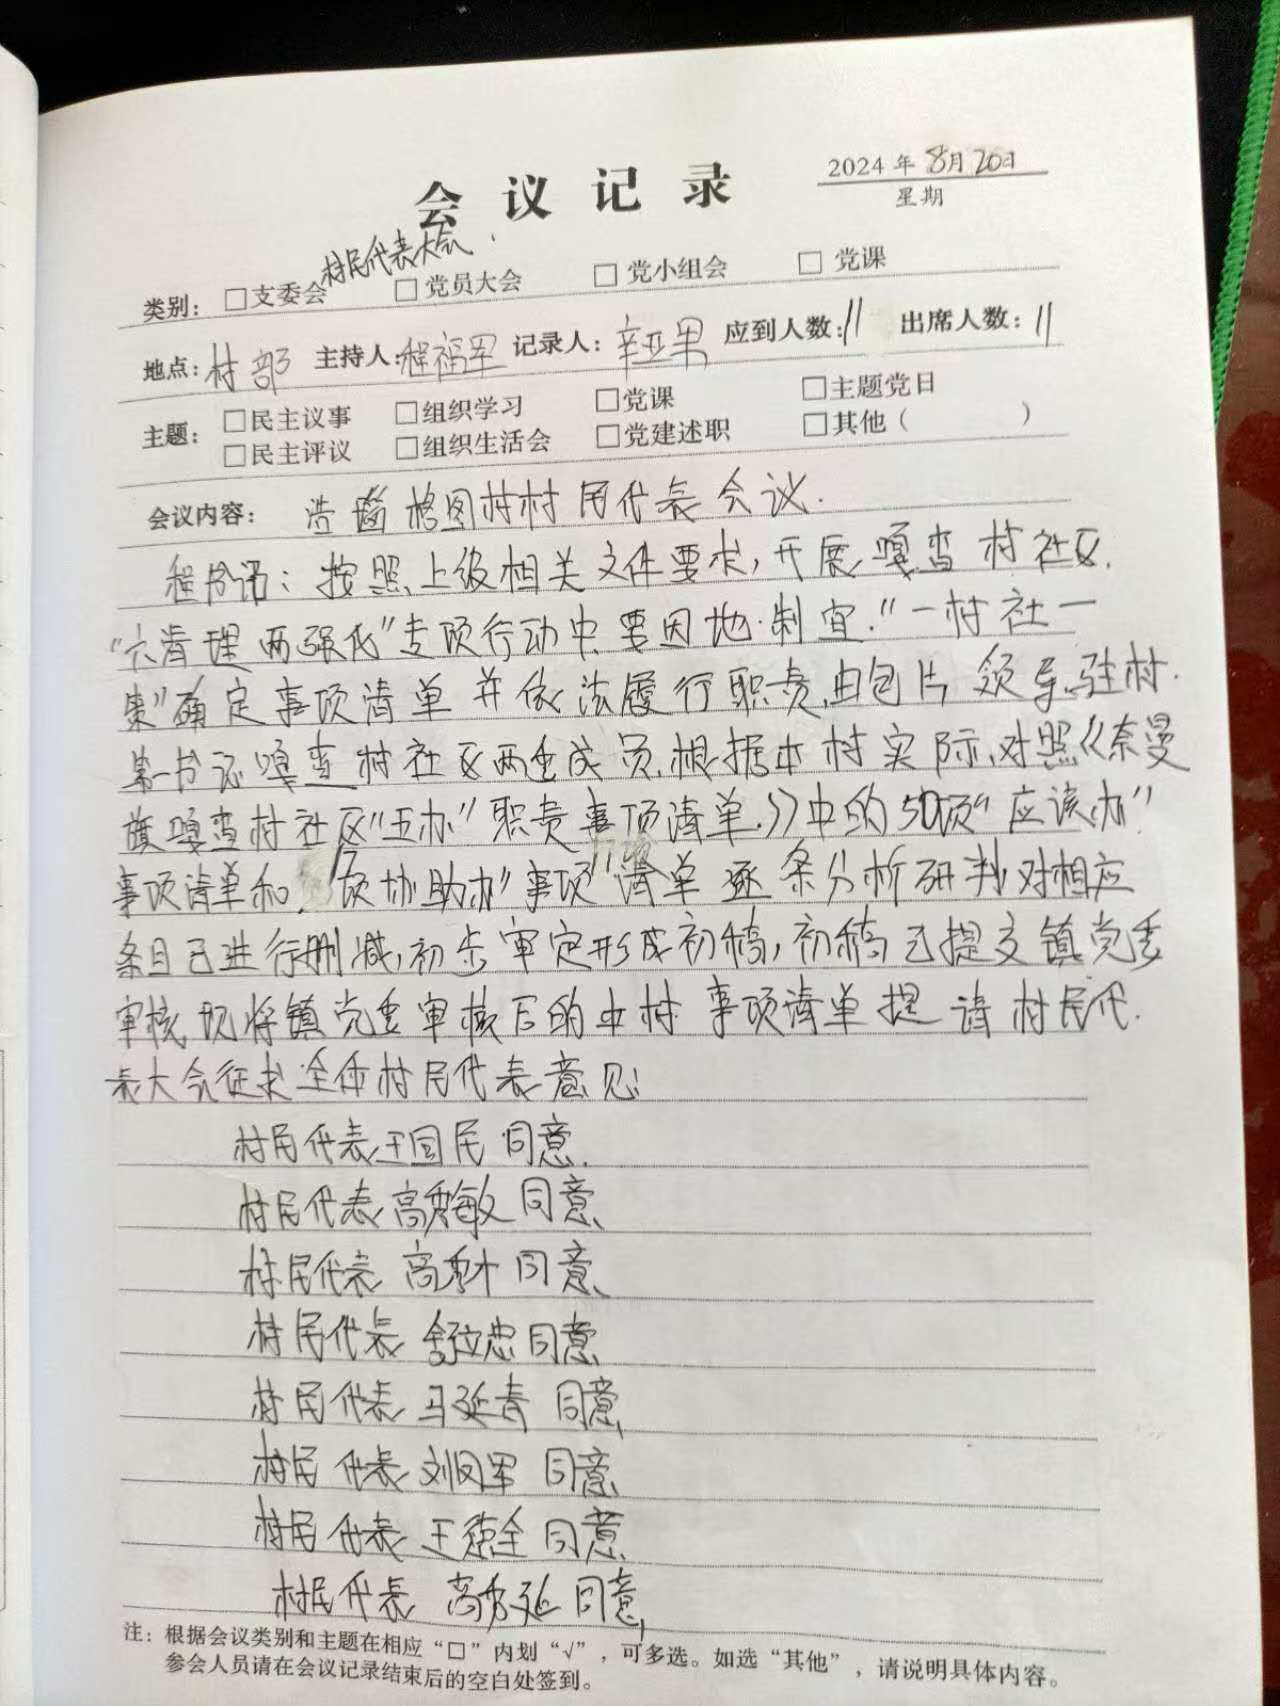 会议记录
2024年8月20日
星期
村民代表大会
类别：□支委会 □党员大会 □党小组会 □党课
地点：村部 主持人：程福军 记录人：辛亚果 应到人数：11 出席人数：11
主题：□民主议事 □组织学习 □党课 □主题党日
□民主评议 □组织生活会 □党建述职 □其他（ ）
会议内容： 浩 格图村村民代表会议.
程书记：按照上级相关文件要求，开展嘎查村社区
“六清理两强化”专项行动中要因地制宜.“一村社一
策”确定事项清单并依法履行职责.由包片领导、驻村
第一书记嘎查村社区两委成员.根据本村实际,对照《奈曼
旗嘎查村社区“五办”职责事项清单.》中的50项“应该办”
事项清单和 17项协助办”事项”清单逐条分析研判对相应
条目已进行删减,初步审定形成初稿，初稿已提交镇党委
审核,现将镇党委审核后的本村事项清单提请村民代
表大会征求全体村民代表意见:
村民代表王国民 同意.
村民代表高秀敏 同意、
村民代表 高秀 同意、
村民代表 舒立忠同意
村民代表 马延青 同意
村民代表 刘凤军 同意
村民代表 王德全 同意
村民代表 高秀延 同意
注：根据会议类别和主题在相应“□”内划“√”，可多选。如选“其他”，请说明具体内容。
参会人员请在会议记录结束后的空白处签到。